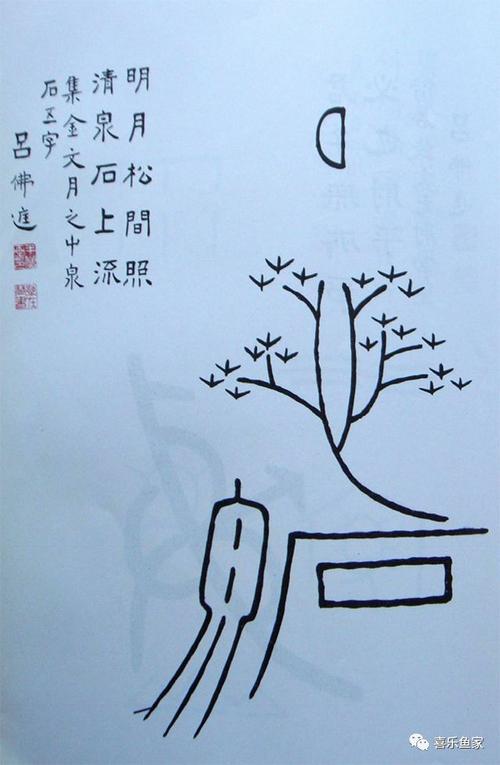 明月松間照
清泉石上流
集金文月之中泉
石五字
呂佛庭
喜乐鱼家